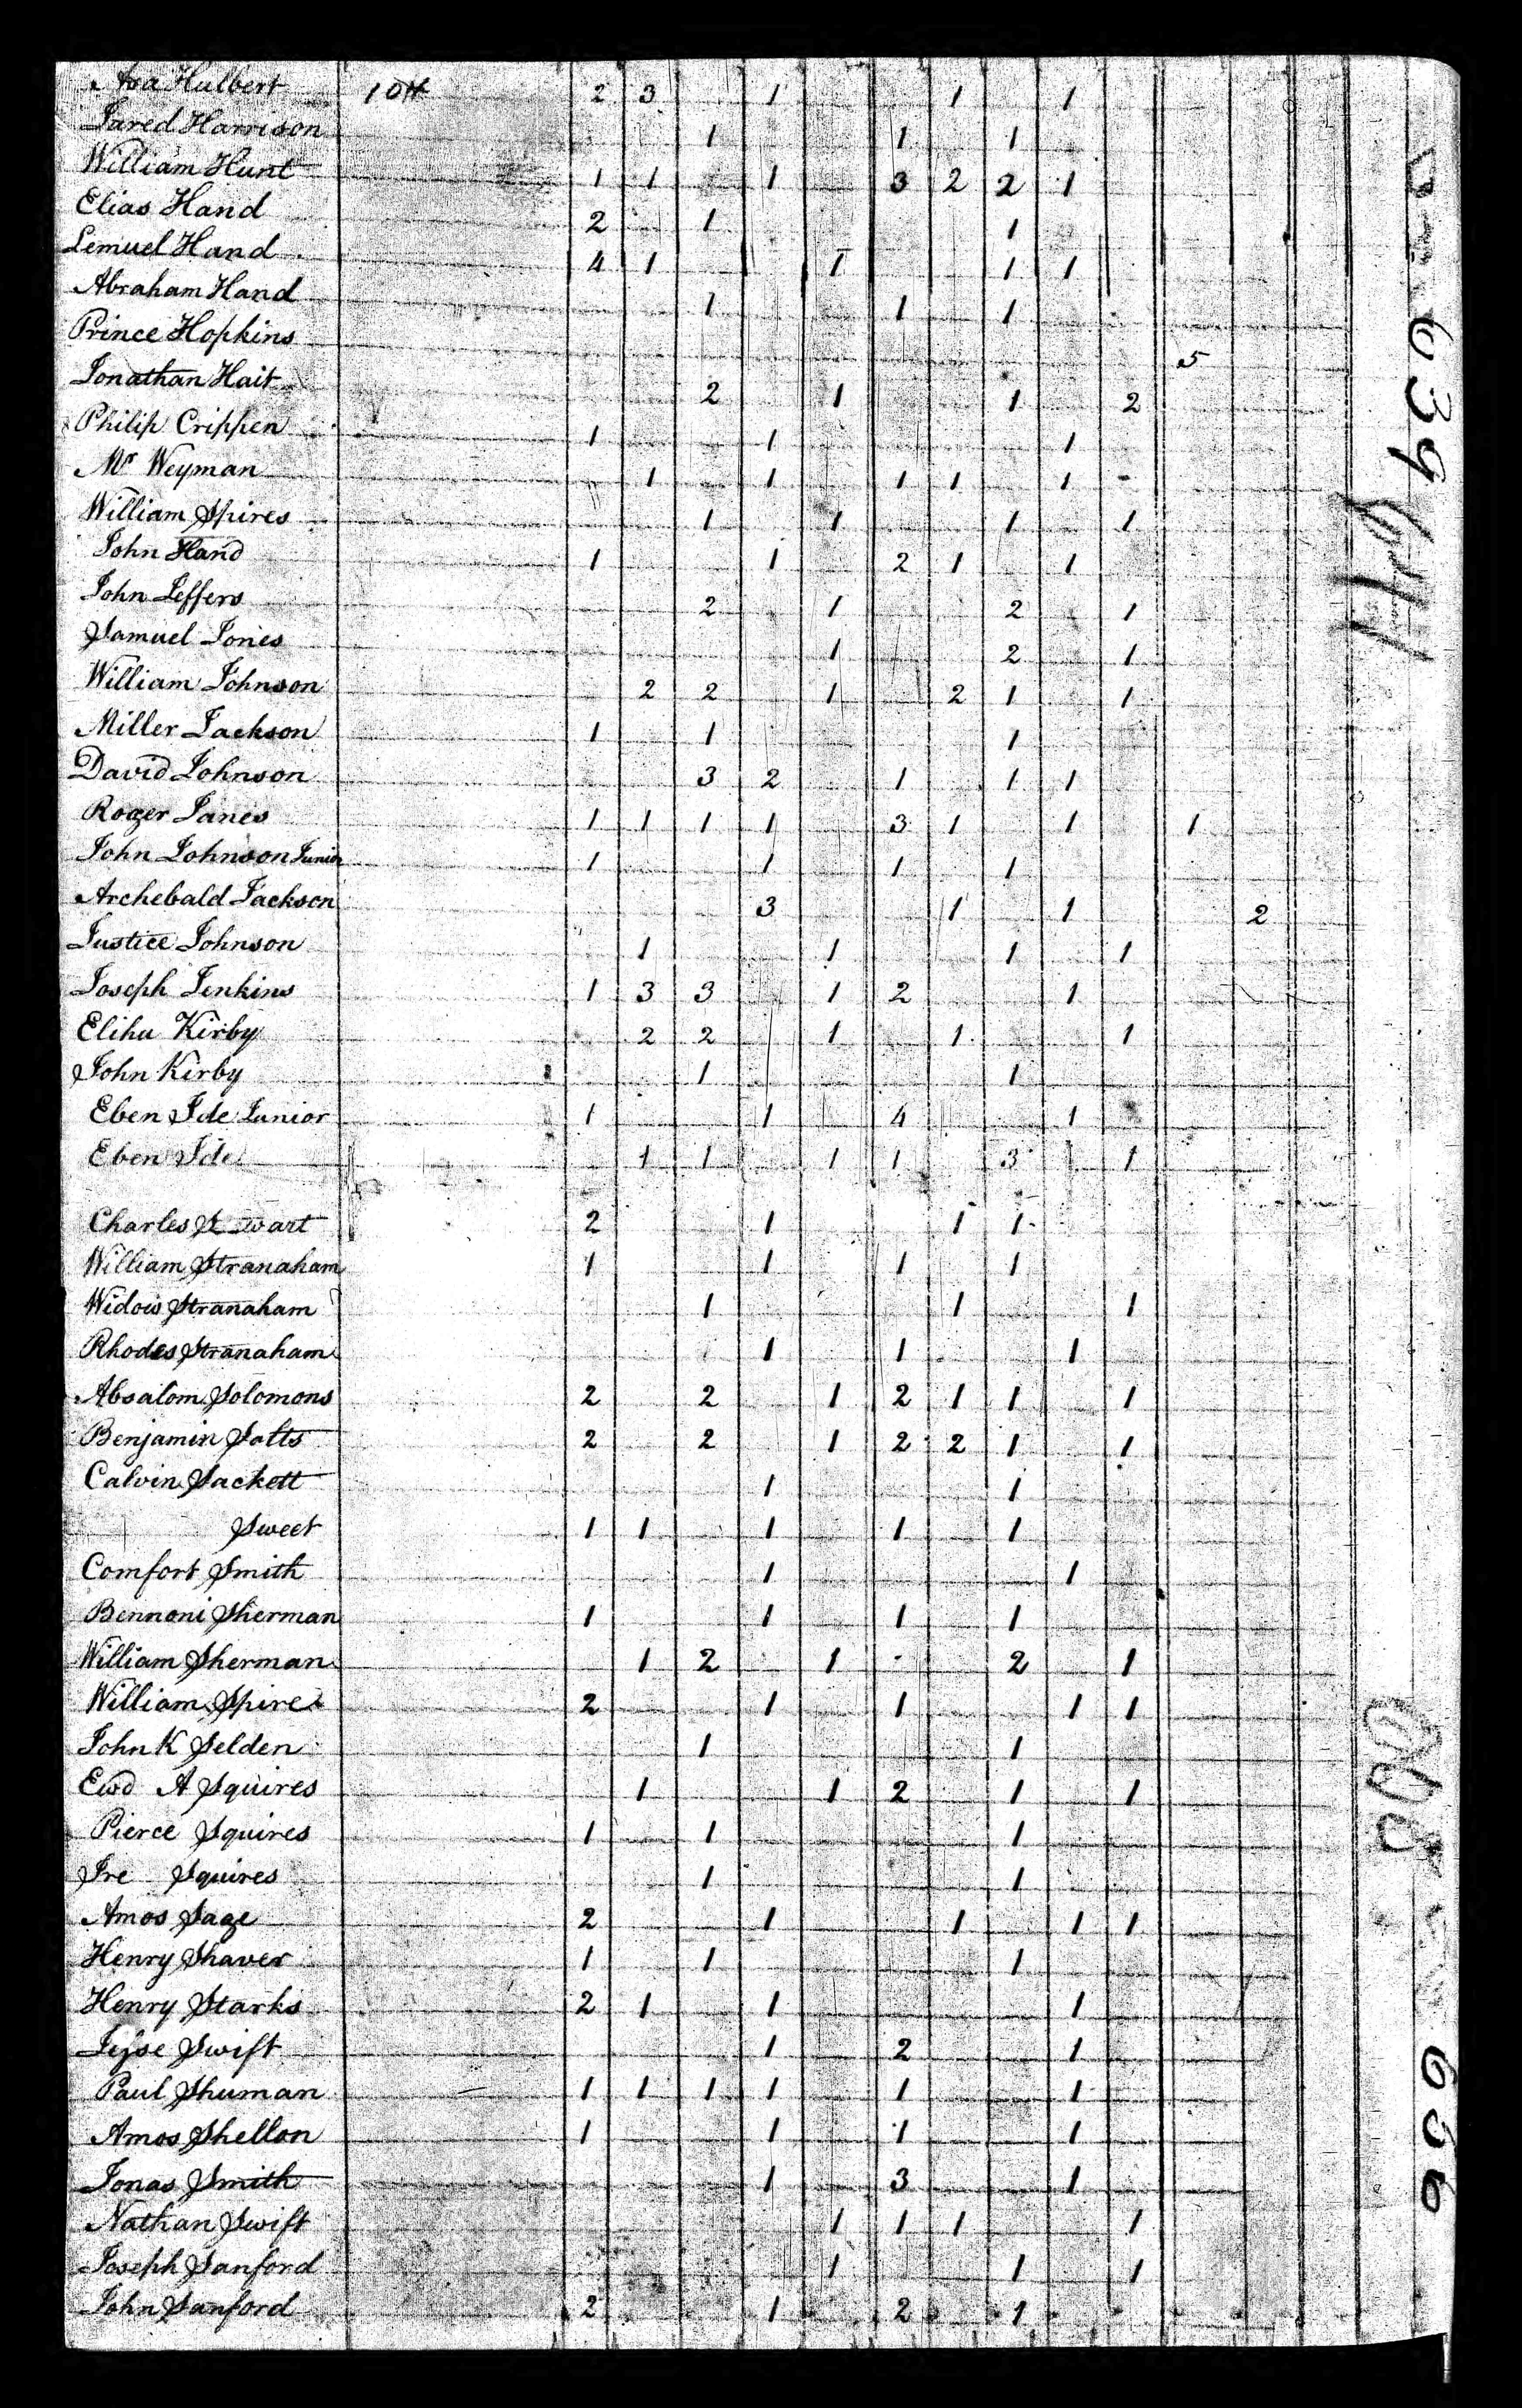 Asa Hulbert 10th 2 3 1 1 1
Jared Harrison 1 1 1
William Hunt 1 1 1 3 2 2 1
Elias Hand 2 1 1
Lemuel Hand 4 1 1 1 1
Abraham Hand 1 1 1
Prince Hopkins 5
Jonathan Hait 2 1 1 2
Philip Crippen 1 1 1
Mr Weyman 1 1 1 1 1
William Spires 1 1 1 1
John Hand 1 1 2 1 1
John Jeffers 2 1 2 1
Samuel Jones 1 2 1
William Johnson 2 2 1 2 1 1
Miller Jackson 1 1 1
David Johnson 3 2 1 1 1
Roger Janes 1 1 1 1 3 1 1 1
John Johnson Junior 1 1 1 1
Archebald Jackson 3 1 1 2
Justice Johnson 1 1 1 1
Joseph Jenkins 1 3 3 1 2 1
Elihu Kirby 2 2 1 1 1
John Kirby 1 1
Eben Ide Junior 1 1 4 1
Eben Ide 1 1 1 1 3 1
Charles St wart 2 1 1 1
William Stranaham 1 1 1 1
Widow Stranaham 1 1 1
Rhodes Stranaham 1 1 1
Absalom Solomons 2 2 1 2 1 1 1
Benjamin Sotts 2 2 1 2 2 1 1
Calvin Sackett 1 1
Sweet 1 1 1 1 1
Comfort Smith 1 1
Bennoni Sherman 1 1 1 1
William Sherman 1 2 1 2 1
William Spires 2 1 1 1 1
John K Selden 1 1
Ewd A Squires 1 1 2 1 1
Pierce Squires 1 1 1
Ire Squires 1 1
Amos Sage 2 1 1 1 1
Henry Shaver 1 1 1
Henry Starks 2 1 1 1
Jesse Swift 1 2 1
Paul Shuman 1 1 1 1 1 1
Amos Shellon 1 1 1 1
Jonas Smith 1 3 1
Nathan Swift 1 1 1 1
Joseph Sanford 1 1 1
John Sanford 2 1 2 1
639